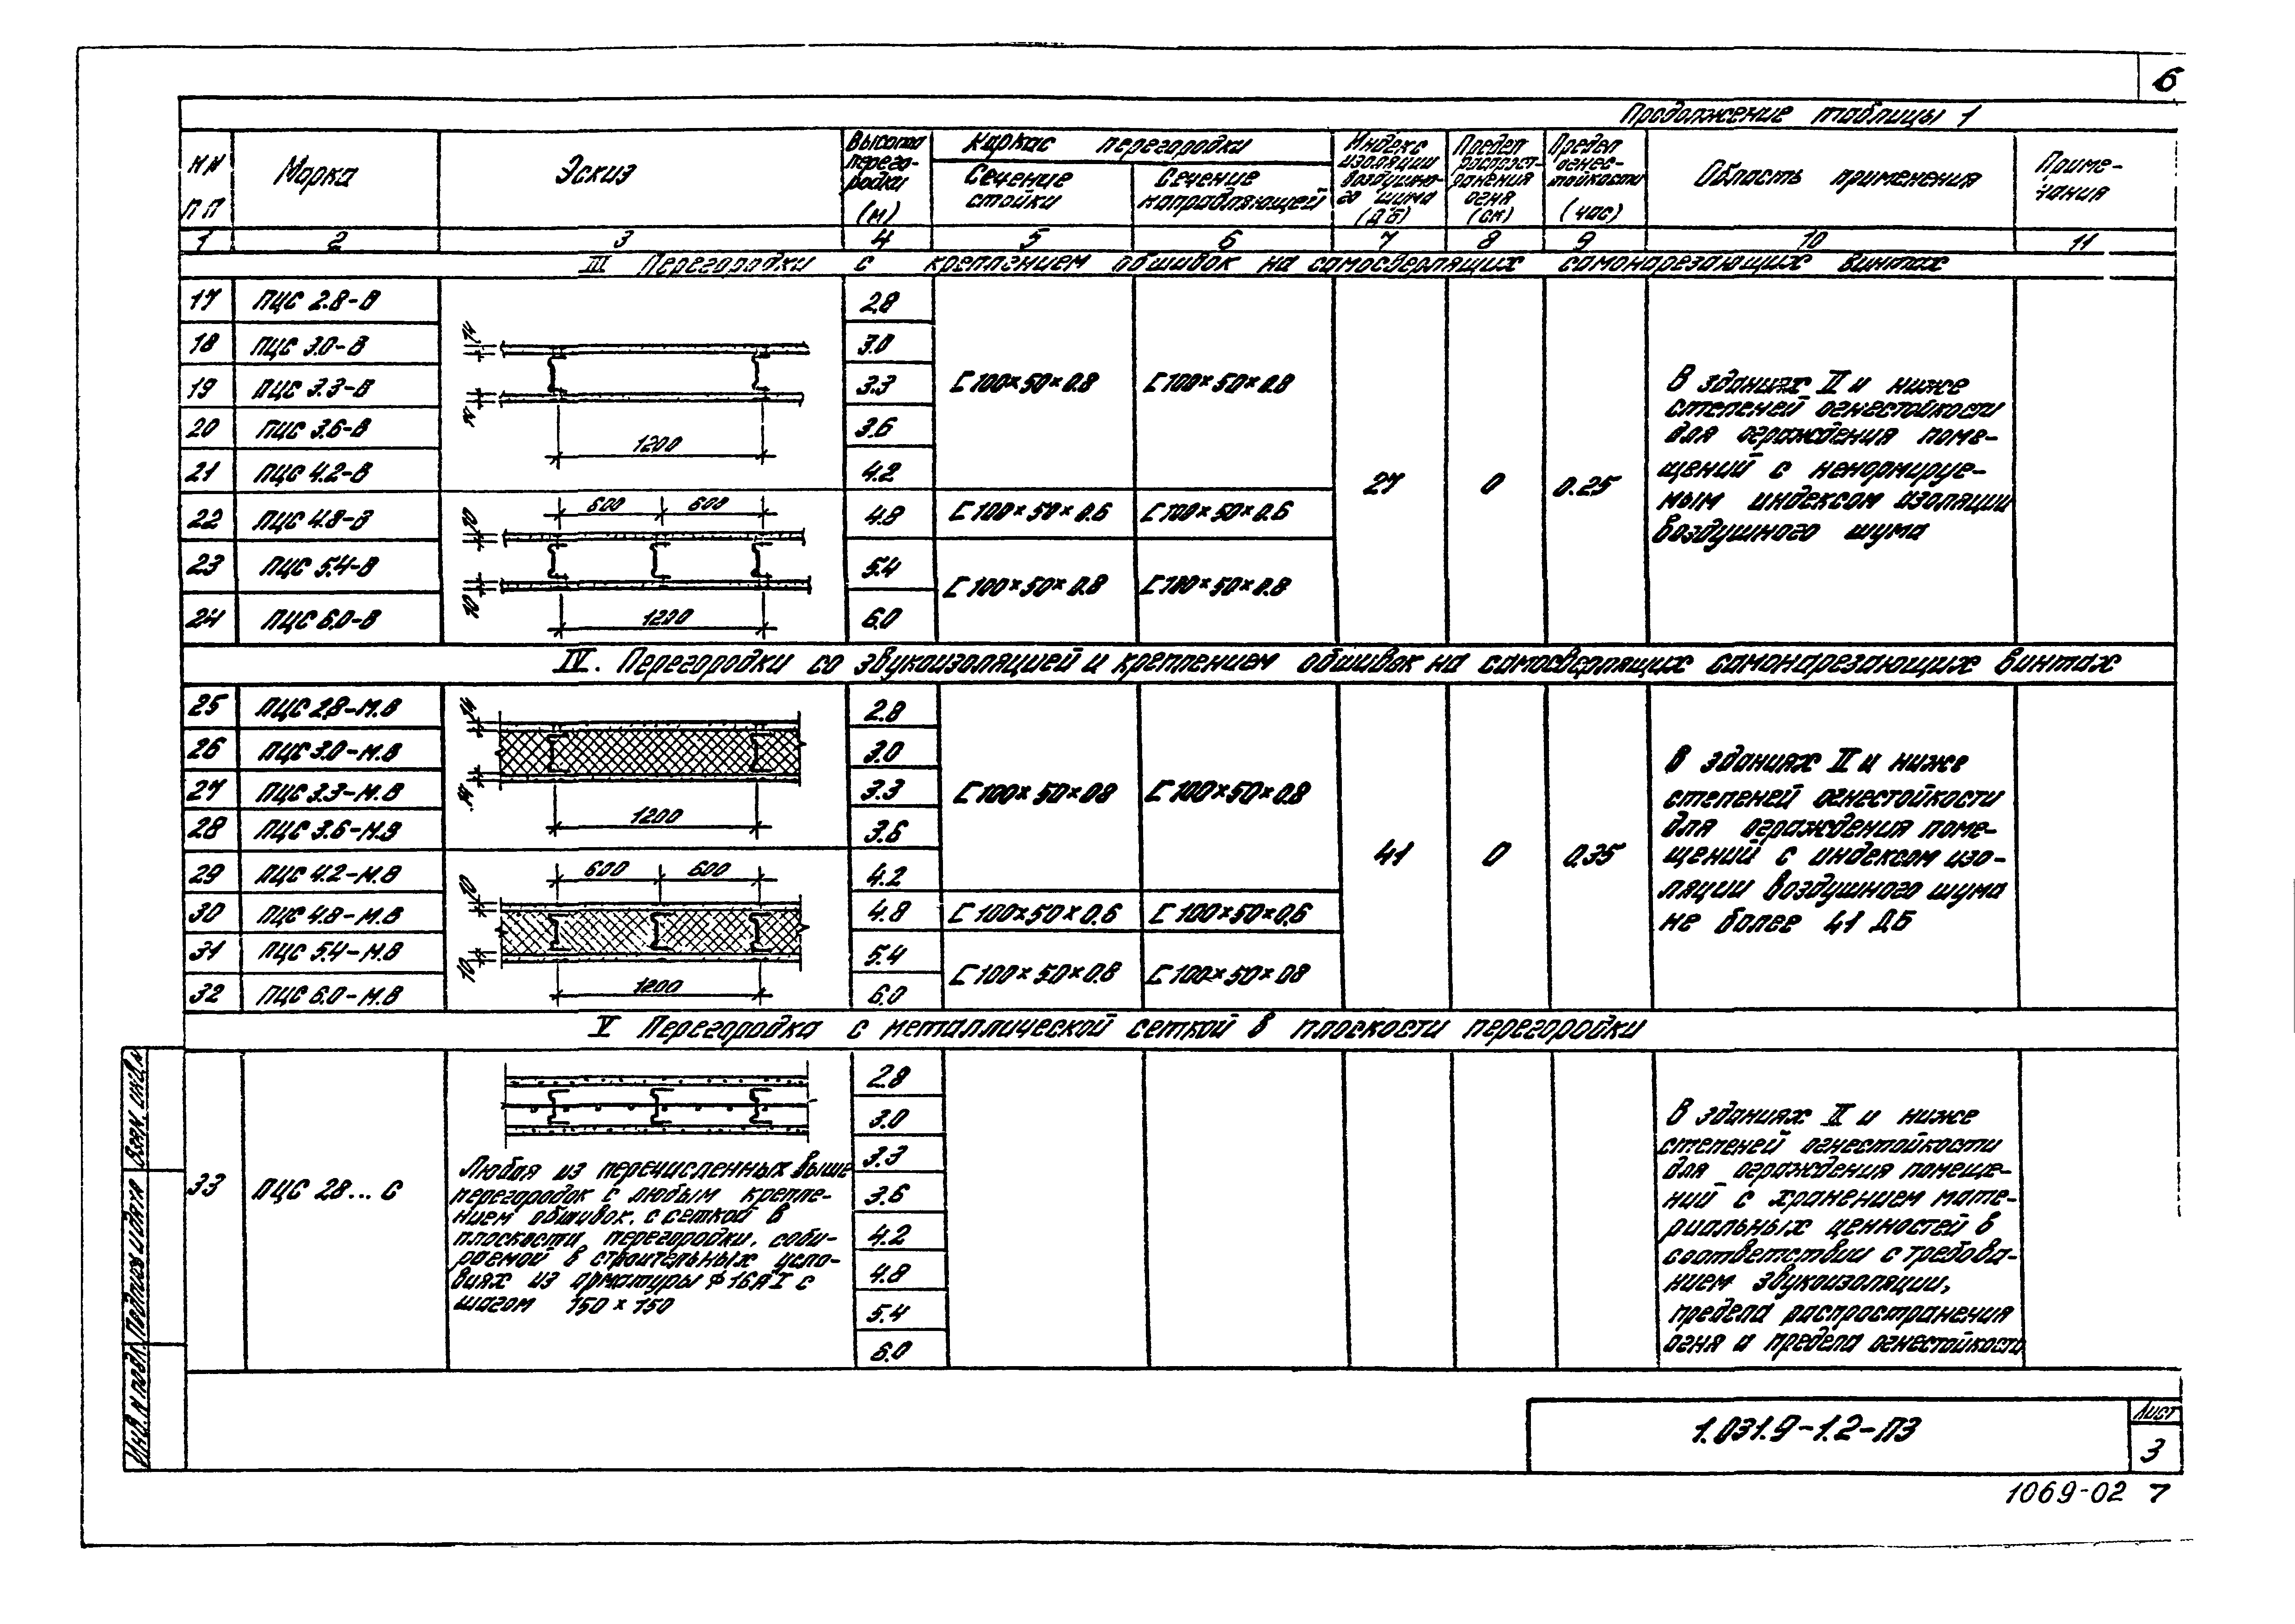 6
Продолжение таблицы 1
NN пп
Марка
Эскиз
Высота перего-родки (м)
Каркас перегородки
Сечение стойки
Сечение направляющей
Индекс изоляции воздушно-го шума (дБ)
Предел распрост-ранения огня (см)
Предел огнес-тойкости (час)
Область применения
Приме-чания
1 2 3 4 5 6 7 8 9 10 11
III Перегородки с креплением обшивок на самосверлящих самонарезающих винтах
17 ПЦС 2.8-В 2.8
18 ПЦС 3.0-В 3.0
19 ПЦС 3.3-В 3.3
20 ПЦС 3.6-В 3.6
21 ПЦС 4.2-В 4.2
22 ПЦС 4.8-В 4.8
23 ПЦС 5.4-В 5.4
24 ПЦС 6.0-В 6.0
1200
600 600
1200
[100×50×0.8 [100×50×0.8
[100×50×0.6 [100×50×0.6
[100×50×0.8 [100×50×0.8
27 0 0.25
В зданиях II и ниже
степеней огнестойкости
для ограждения поме-
щений с ненормируе-
мым индексом изоляции
воздушного шума
IV. Перегородки со звукоизоляцией и креплением обшивок на самосверлящих самонарезающих винтах
25 ПЦС 2.8-М.В 2.8
26 ПЦС 3.0-М.В 3.0
27 ПЦС 3.3-М.В 3.3
28 ПЦС 3.6-М.В 3.6
29 ПЦС 4.2-М.В 4.2
30 ПЦС 4.8-М.В 4.8
31 ПЦС 5.4-М.В 5.4
32 ПЦС 6.0-М.В 6.0
1200
600 600
10
1200
[100×50×08 [100×50×0.8
[100×50×0.6 [100×50×0.6
[100×50×0.8 [100×50×08
41 0 0.35
В зданиях II и ниже
степеней огнестойкости
для ограждения поме-
щений с индексом изо-
ляции воздушного шума
не более 41 дБ
V Перегородка с металлической сеткой в плоскости перегородки
33 ПЦС 28...С
Любая из перечисленных выше
перегородок с любым крепле-
нием обшивок, с сеткой в
плоскости перегородки, соби-
раемой в строительных усло-
виях из арматуры ф16АI с
шагом 150×150
2.8
3.0
3.3
3.6
4.2
4.8
5.4
6.0
В зданиях II и ниже
степеней огнестойкости
для ограждения помеще-
ний с хранением мате-
риальных ценностей в
соответствии с требова-
нием звукоизоляции,
предела распространения
огня и предела огнестойкость
Инв. N подл. Подпись и дата Взам. инв. N
1.031.9-1.2-ПЗ
Лист
3
1069-02 7